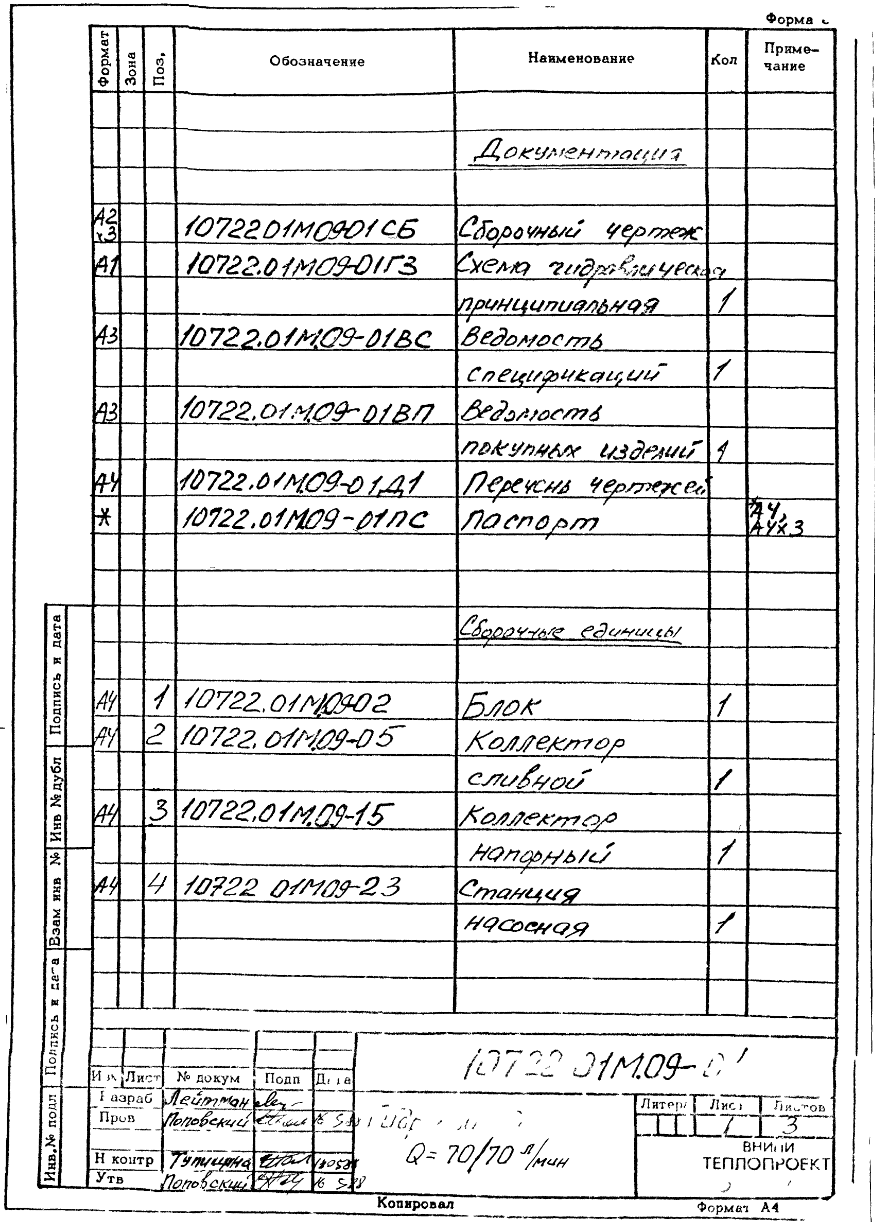 Форма
Формат Зона Поз. Обозначение Наименование Кол Приме-
чание
Документация
А2
х3 10722 01М09-01СБ Сборочный чертеж
А1 10722.01М09-01Г3 Схема гидравлическая
принципиальная 1
А3 10722.01М.09-01ВС Ведомость
спецификаций 1
А3 10722.01М.09-01ВП Ведомость
покупных изделий 1
А4 10722.01М.09-01Д1 Перечень чертежей
* 10722.01М.09-01ПС Паспорт *А4,
А4х3
Сборочные единицы
А4 1 10722.01М.09-02 Блок 1
А4 2 10722.01М.09-05 Коллектор
сливной 1
А4 3 10722.01М.09-15 Коллектор
напорный 1
А4 4 10722 01М09-23 Станция
насосная 1
Подпись и дата
Инв № дубл
Взам инв №
Подпись и дата
Инв.№ подл
10722 01М.09-01
Лист № докум Подп Дата
Разраб Лейтман
Пров Поповский
Н контр Тупицина
Утв Поповский
Q = 70/70 л/мин
Литер Лист Листов
1 3
ВНИПИ
ТЕПЛОПРОЕКТ
Копировал
Формат А4